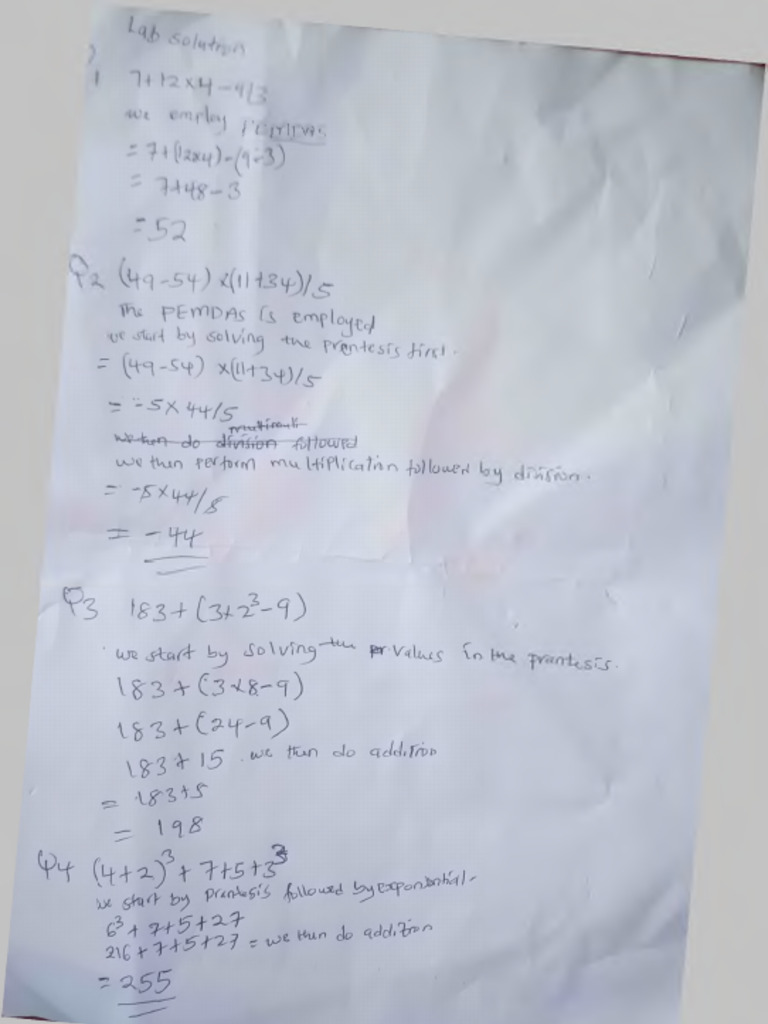 Lab solution
1 7+12×4-9/3
we employ PEMDAS
= 7+(12×4)-(9÷3)
= 7+48-3
= 52
Q2 (49-54)×(11+34)/5
The PEMDAS is employed
we start by solving the prentesis first.
= (49-54)×(11+34)/5
= -5×44/5
we then do division followed
we then perform multiplication followed by division.
= -5×44/5
= -44
Q3 183+(3×2³-9)
we start by solving the pr values in the prantesis.
183+(3×8-9)
183+(24-9)
183+15 we then do addition
= 183+5
= 198
Q4 (4+2)³+7+5+3³
we start by prentesis followed by exponential.
6³+7+5+27
216+7+5+27 = we then do addition
= 255